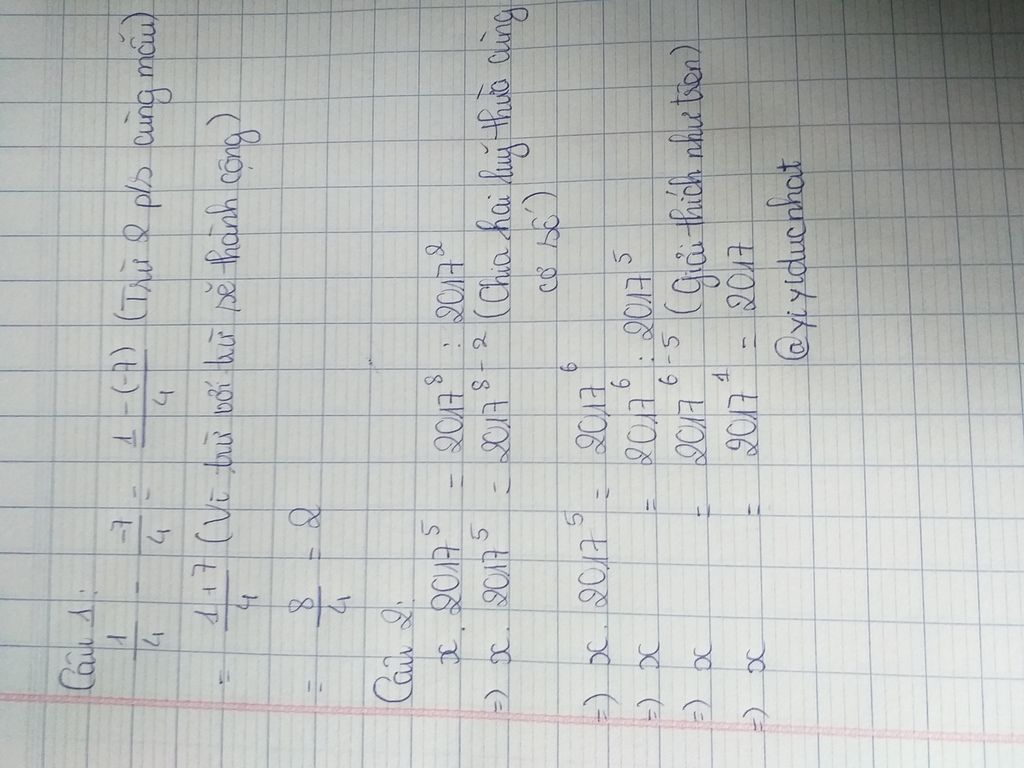 Câu 1:
1/4 - -7/4 = 1-(-7)/4 (Trừ 2 p/s cùng mẫu)
= 1+7/4 (Vì trừ với trừ sẽ thành cộng)
= 8/4 = 2
Câu 2:
x . 2017⁵ = 2017⁸ : 2017²
=) x . 2017⁵ = 2017⁸⁻² (Chia hai luỹ thừa cùng
cơ số)
=) x . 2017⁵ = 2017⁶
=) x = 2017⁶ : 2017⁵
=) x = 2017⁶⁻⁵ (Giải thích như trên)
=) x = 2017¹ = 2017
@yiyiducnhat